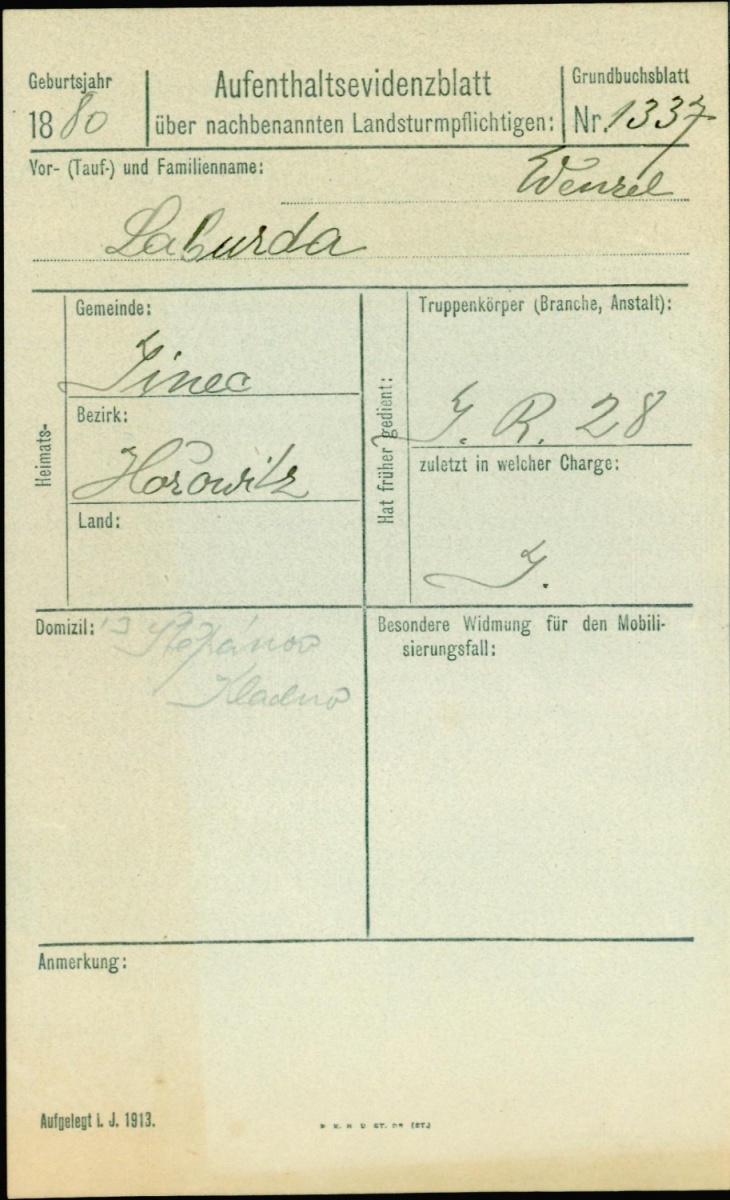 Geburtsjahr
1880
Aufenthaltsevidenzblatt
über nachbenannten Landsturmpflichtigen:
Grundbuchsblatt
Nr. 1337
Vor- (Tauf-) und Familienname:
Wenzel
Laburda
Heimats-
Gemeinde:
Jinec
Bezirk:
Hořowitz
Land:
Hat früher gedient:
Truppenkörper (Branche, Anstalt):
I. R. 28
zuletzt in welcher Charge:
I.
Domizil: 13 Štěpánov
Kladno
Besondere Widmung für den Mobili-
sierungsfall:
Anmerkung:
Aufgelegt i. J. 1913.